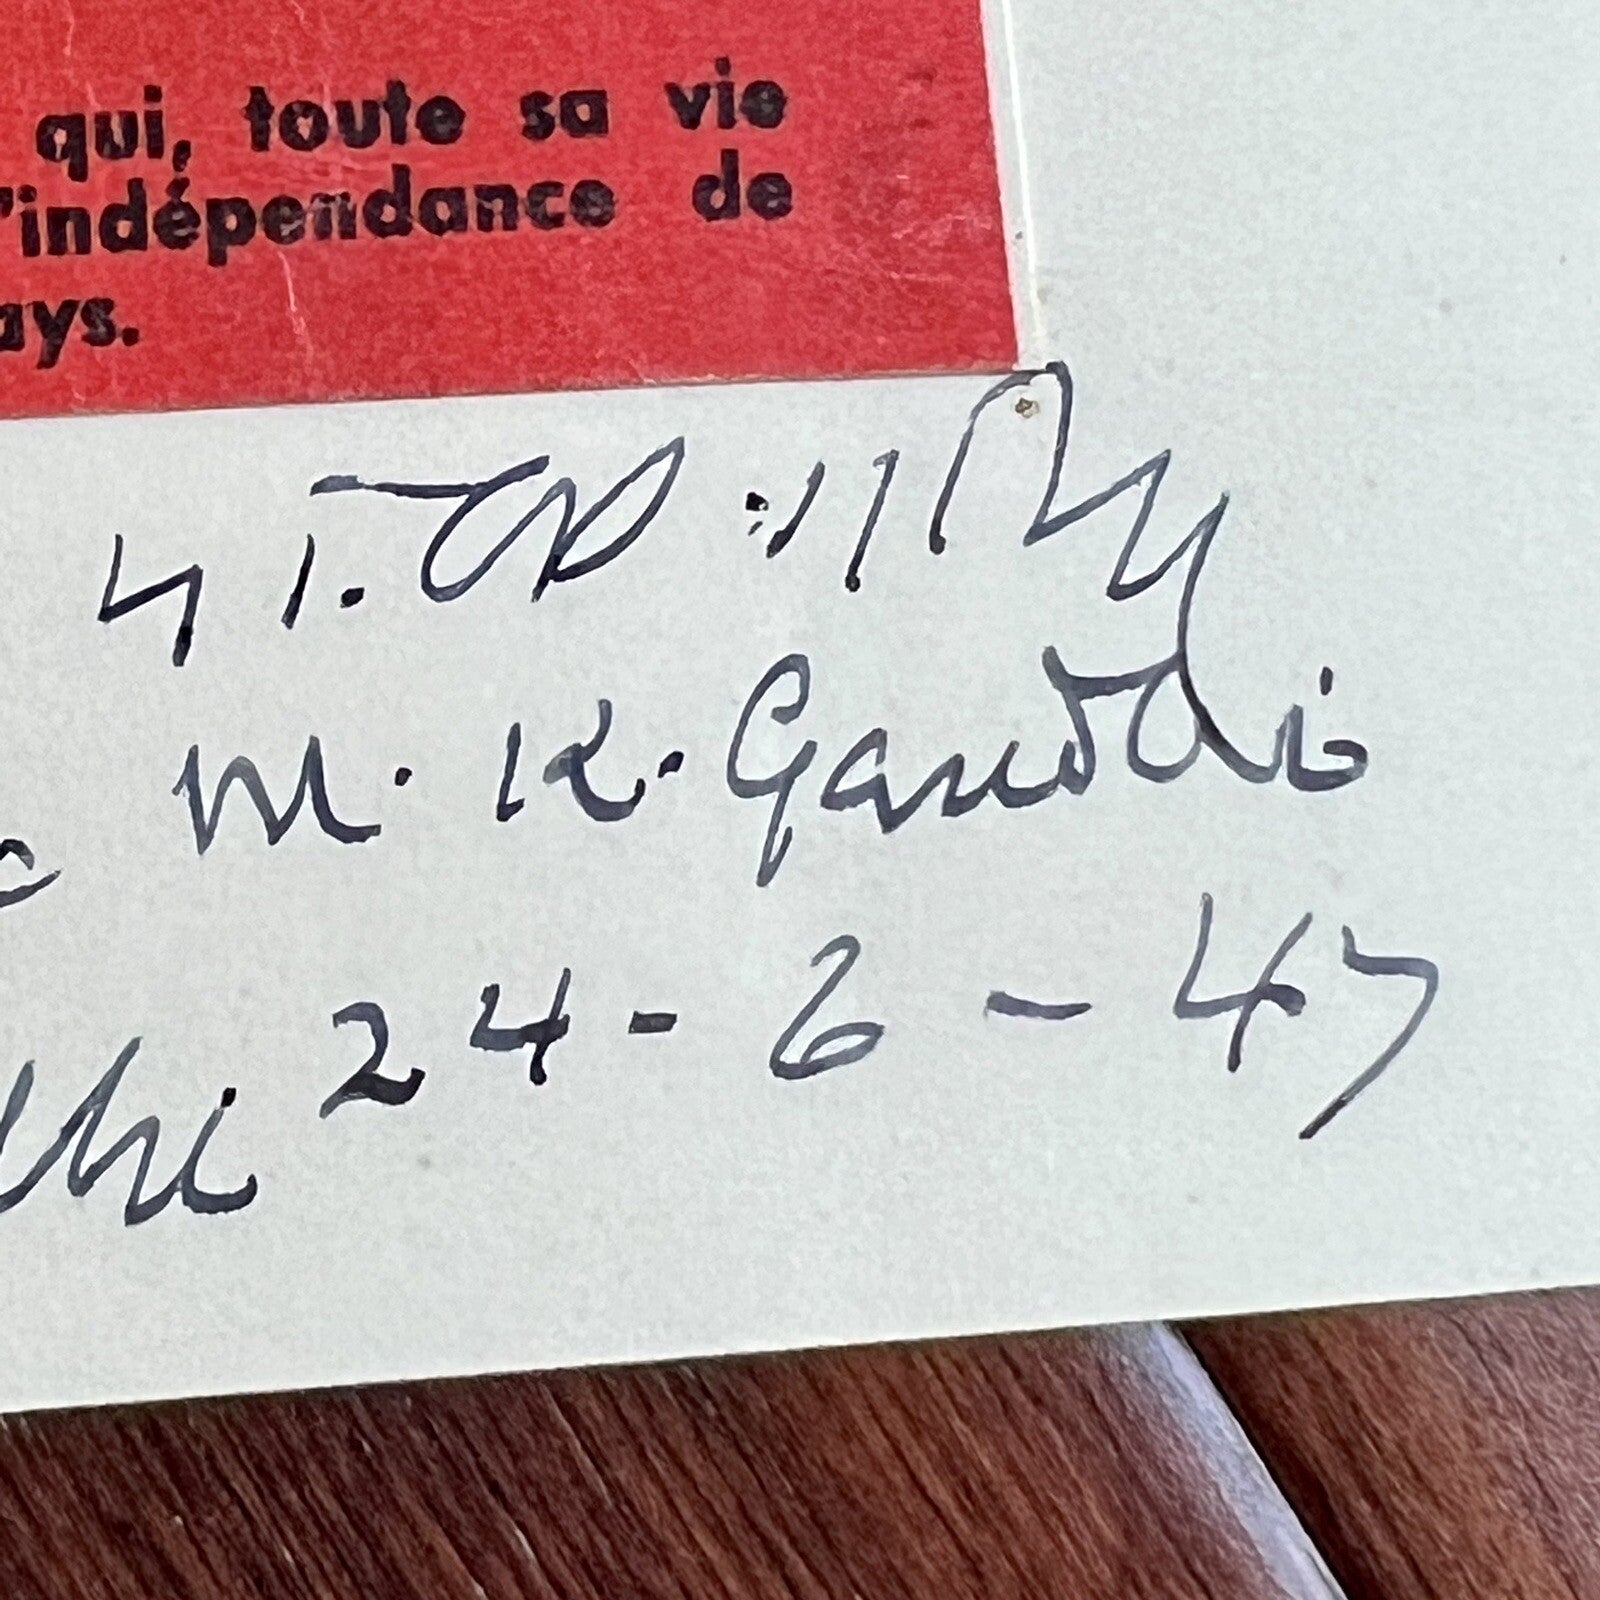 qui, toute sa vie
'indépendance de
ays.
M. K. Gandhi
lhi 24-6-47